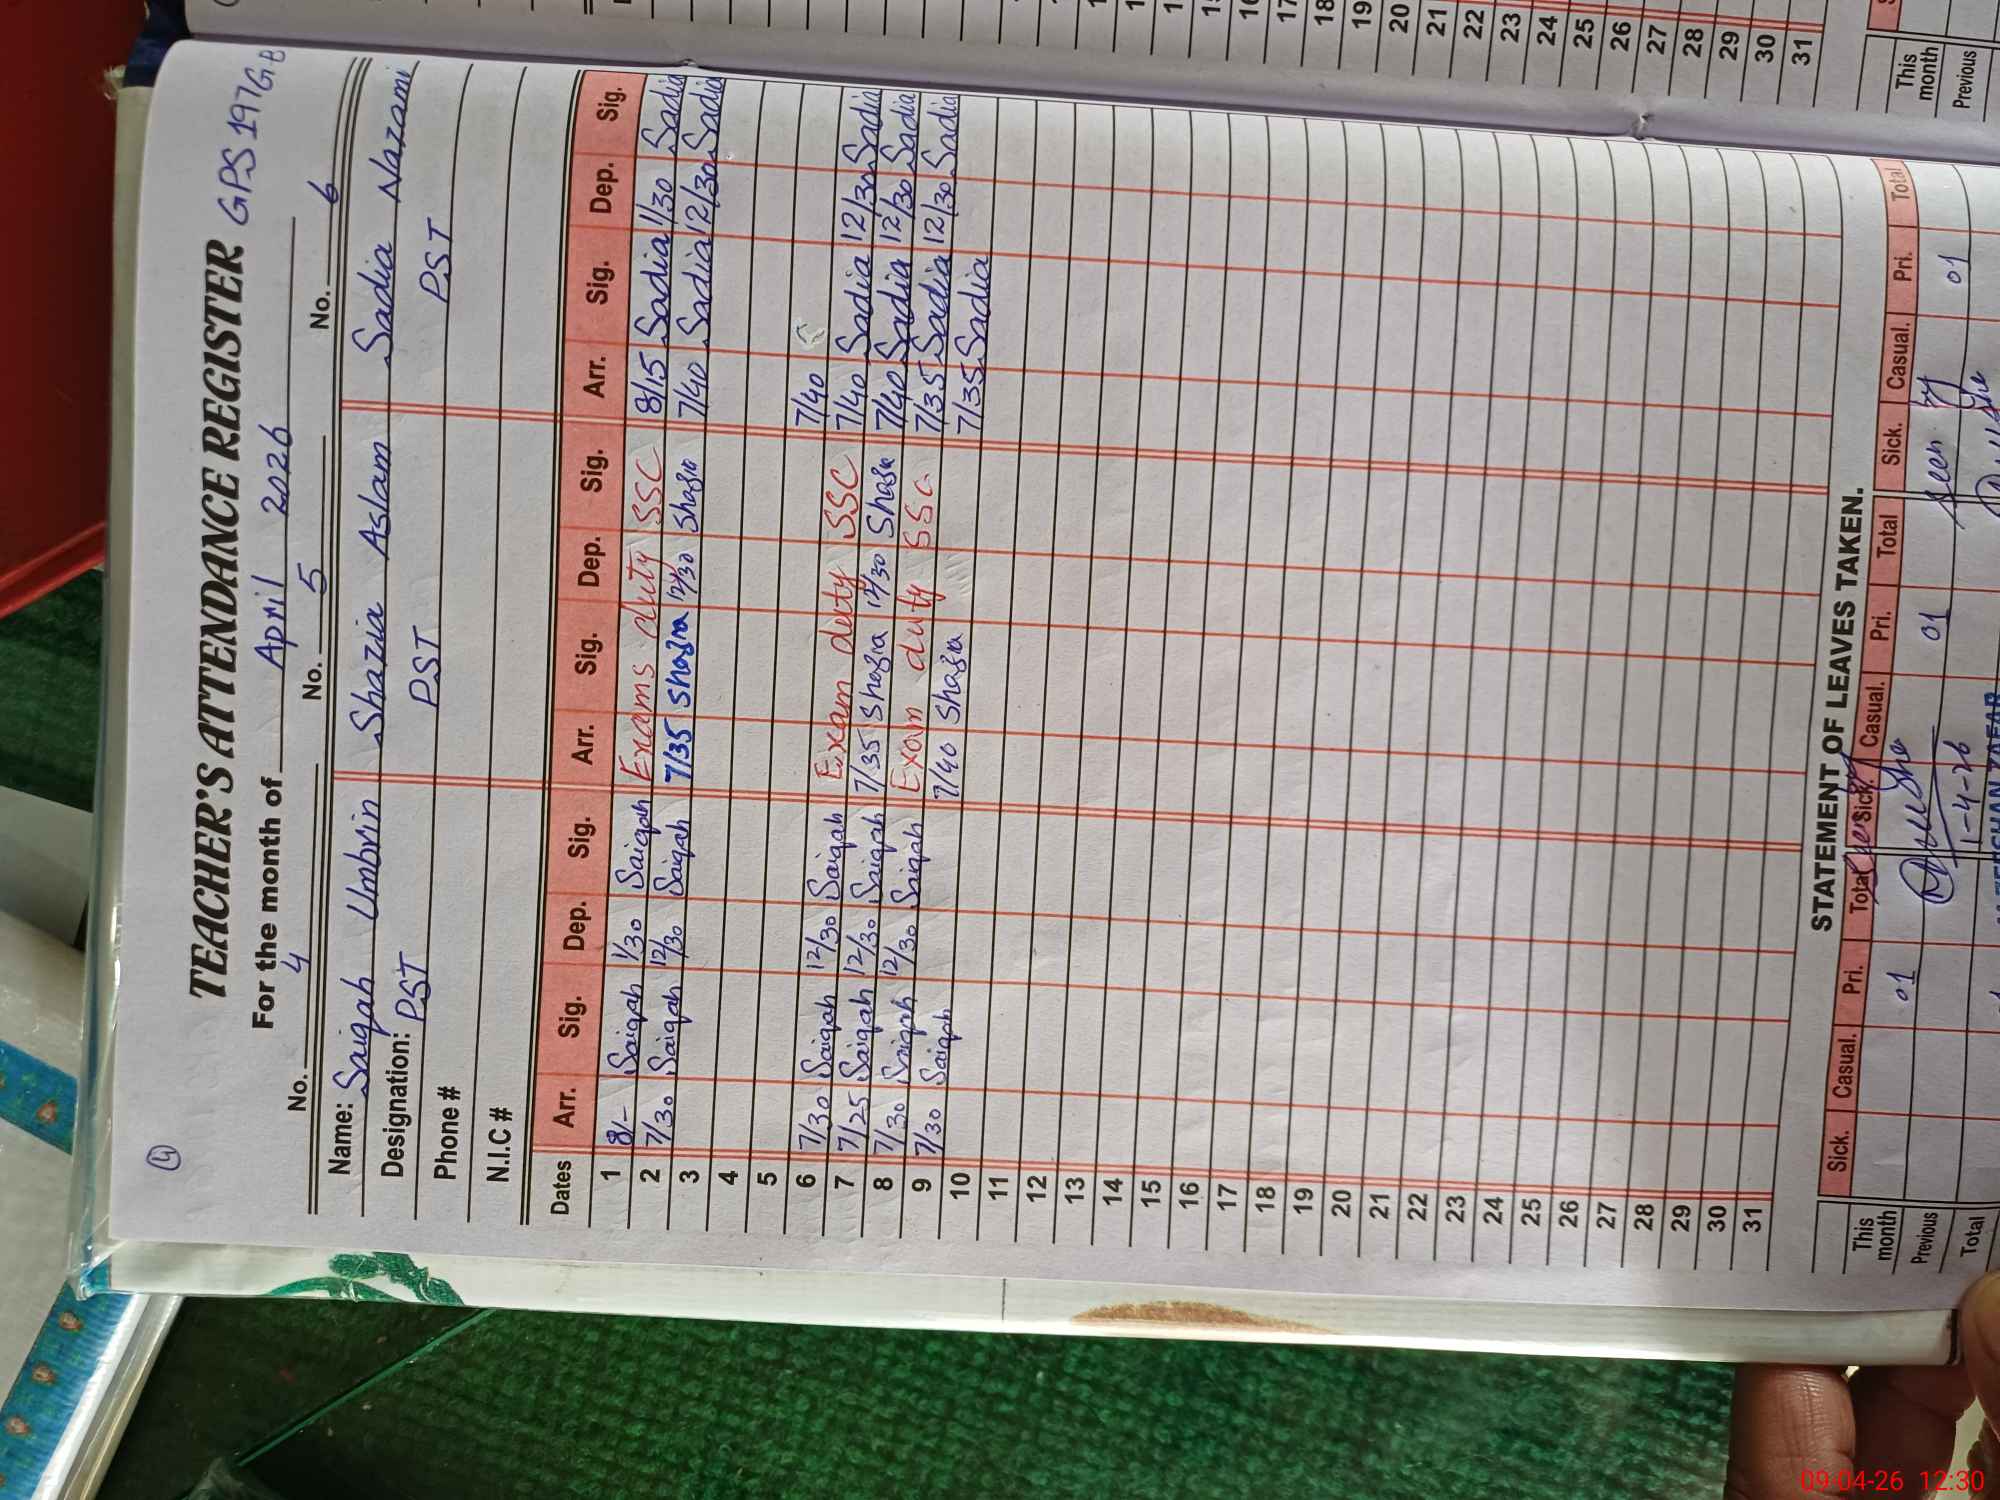 4
TEACHER'S ATTENDANCE REGISTER GPS 197GB
For the month of April 2026
No. 4 No. 5 No. 6
Name: Saiqah Umbrin Shazia Aslam Sadia Nazami
Designation: PST PST PST
Phone #
N.I.C #
Dates Arr. Sig. Dep. Sig. Arr. Sig. Dep. Sig. Arr. Sig. Dep. Sig.
1 8/- Saiqah 1/30 Saiqah Exams duty SSC 8/15 Sadia 1/30 Sadia
2 7/30 Saiqah 12/30 Saiqah 7/35 Shazia 12/30 Shazia 7/40 Sadia 12/30 Sadia
3
4
5
6 7/30 Saiqah 12/30 Saiqah Exam duty SSC 7/40
7 7/25 Saiqah 12/30 Saiqah 7/35 Shazia 12/30 Shazia 7/40 Sadia 12/30 Sadia
8 7/30 Saiqah 12/30 Saiqah Exam duty SSC 7/40 Sadia 12/30 Sadia
9 7/30 Saiqah 7/40 Shazia 7/35 Sadia 12/30 Sadia
10 7/35 Sadia
11
12
13
14
15
16
17
18
19
20
21
22
23
24
25
26
27
28
29
30
31
STATEMENT OF LEAVES TAKEN.
Sick. Casual. Pri. Total Sick. Casual. Pri. Total Sick. Casual. Pri. Total
This month 01 01 Seen by 01
Previous
Total 1-4-26
13
14
15
16
17
18
19
20
21
22
23
24
25
26
27
28
29
30
31
This month
Previous
09-04-26 12:30